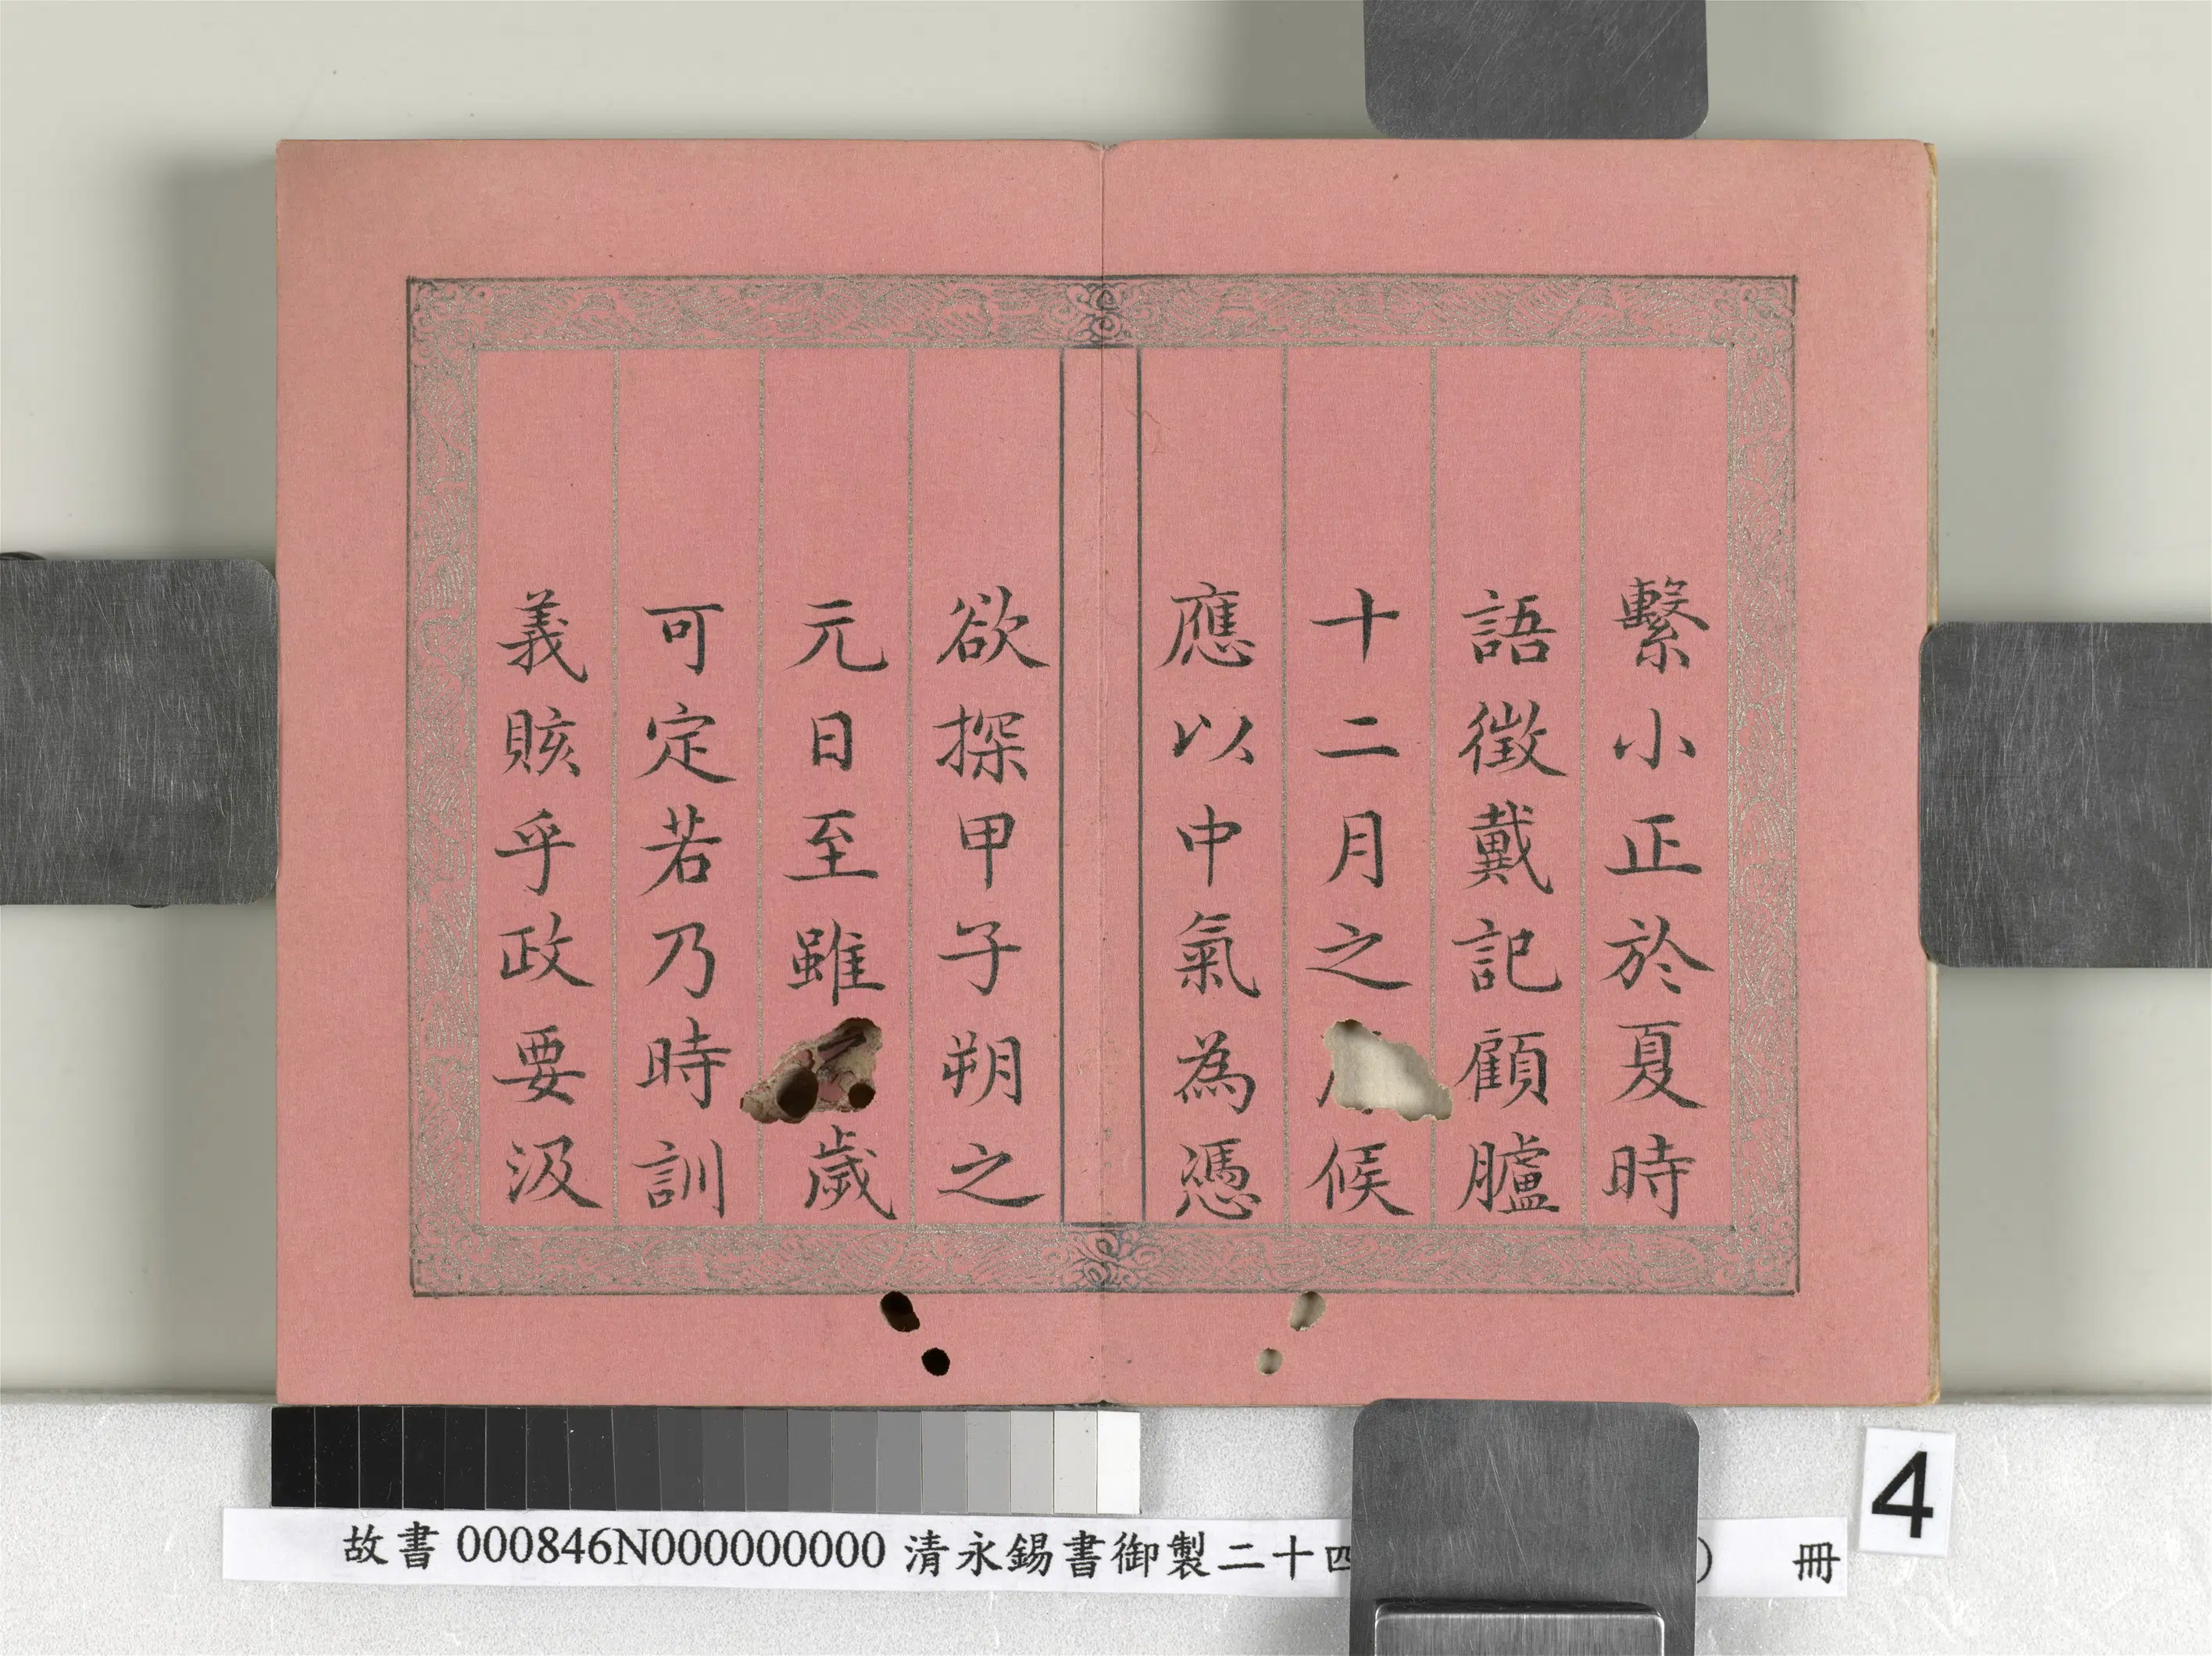 繫小正於夏時
語徵戴記顧臚
十二月之候
應以中氣為憑
欲探甲子朔之
元日至雖歲
可定若乃時訓
義賅乎政要汲
故書 000846N000000000 清永錫書御製二十四 ) 冊
4